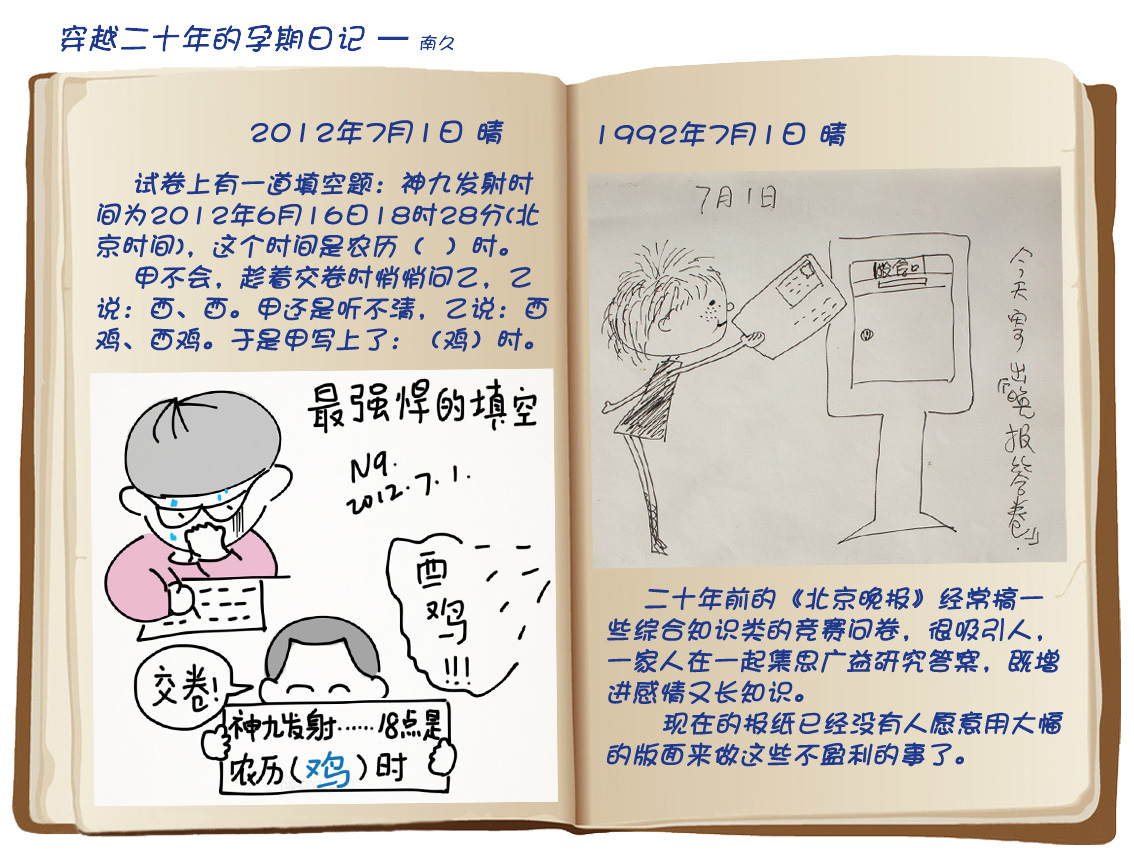 穿越二十年的孕期日记 — 南久
2012年7月1日 晴
试卷上有一道填空题：神九发射时
间为2012年6月16日18时28分(北
京时间)，这个时间是农历（ ）时。
甲不会，趁着交卷时悄悄问乙，乙
说：酉、酉。甲还是听不清，乙说：酉
鸡、酉鸡。于是甲写上了：（鸡）时。
最强悍的填空
N9.
2012.7.1.
酉
鸡
!!!
交卷!
神九发射……18点是
农历(鸡)时
1992年7月1日 晴
7月1日
今天寄出「晚报答卷」.
二十年前的《北京晚报》经常搞一
些综合知识类的竞赛问卷，很吸引人，
一家人在一起集思广益研究答案，既增
进感情又长知识。
现在的报纸已经没有人愿意用大幅
的版面来做这些不盈利的事了。